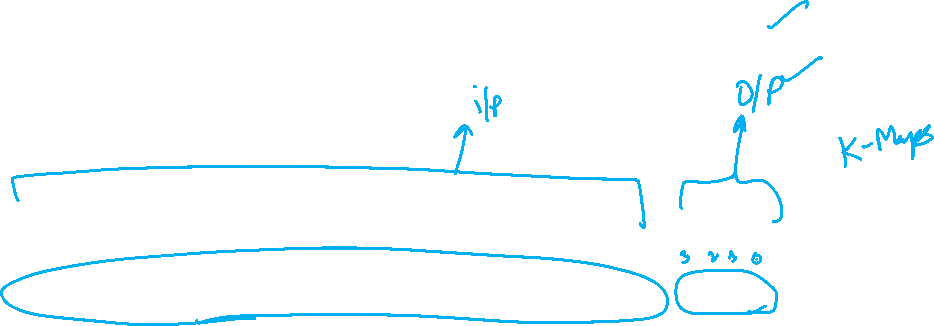 i/p
O/P
K-Maps
3 2 1 0